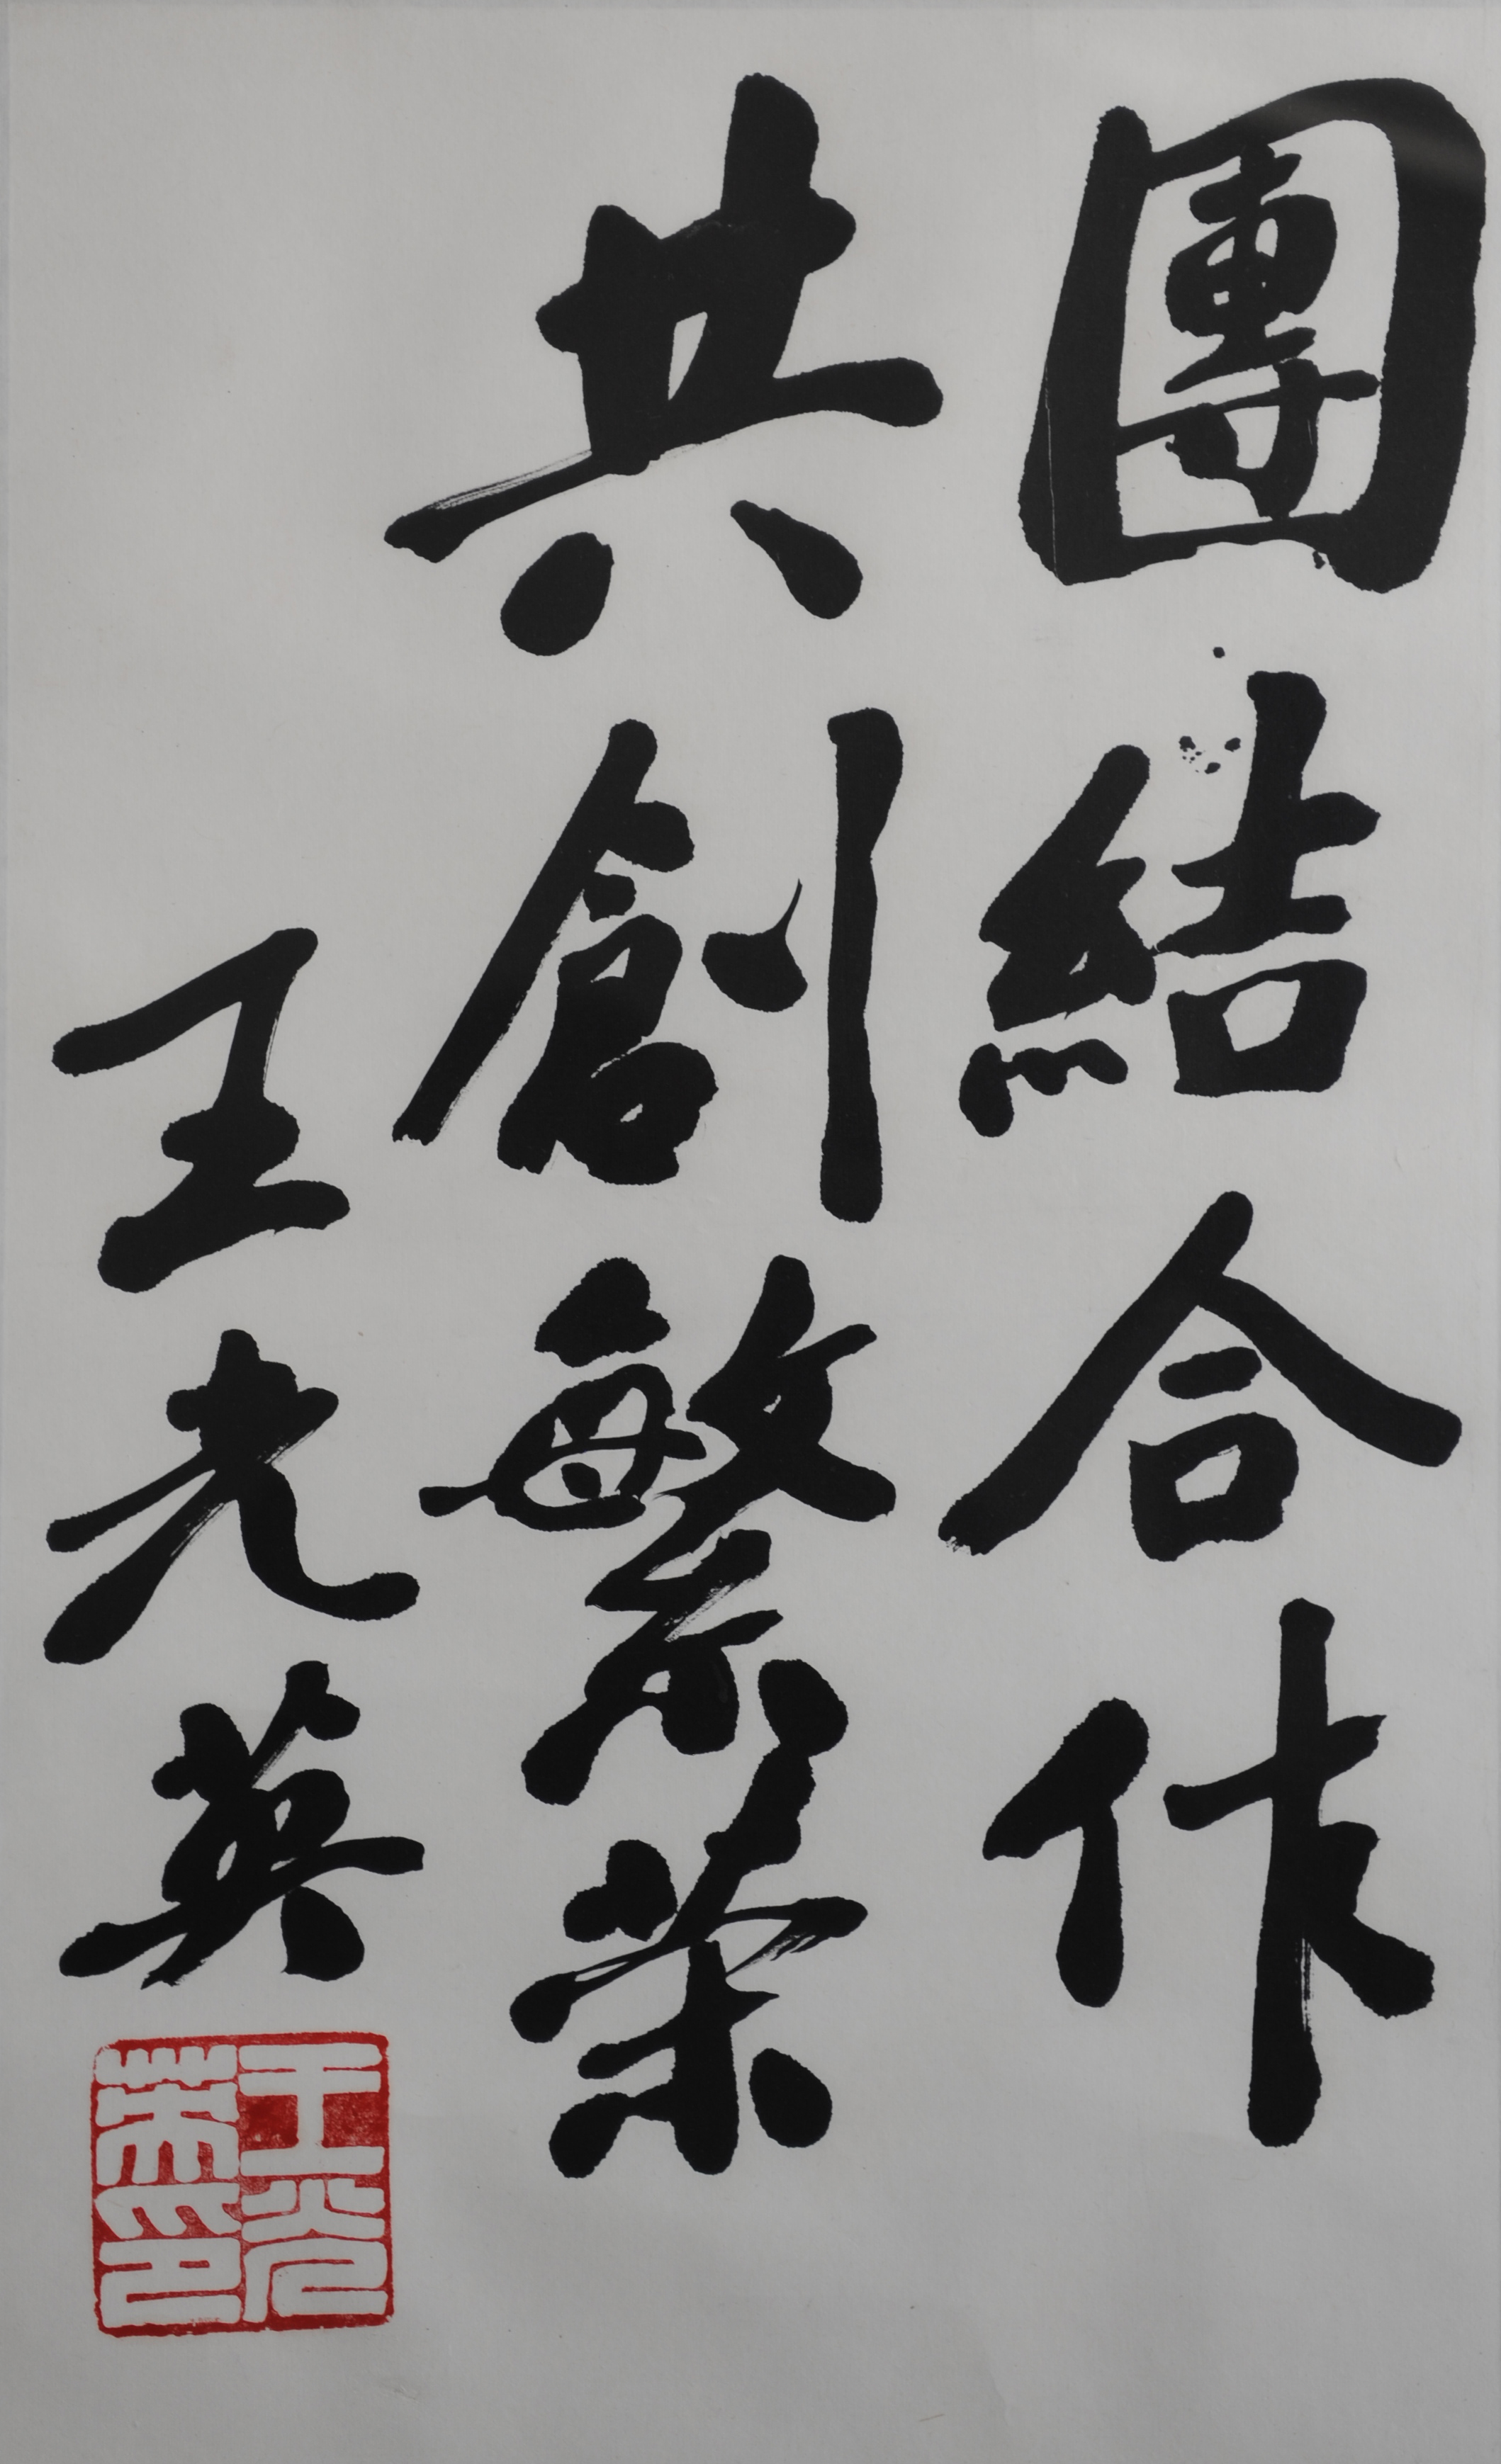 團結合作
共創繁荣
王光英
王光英印